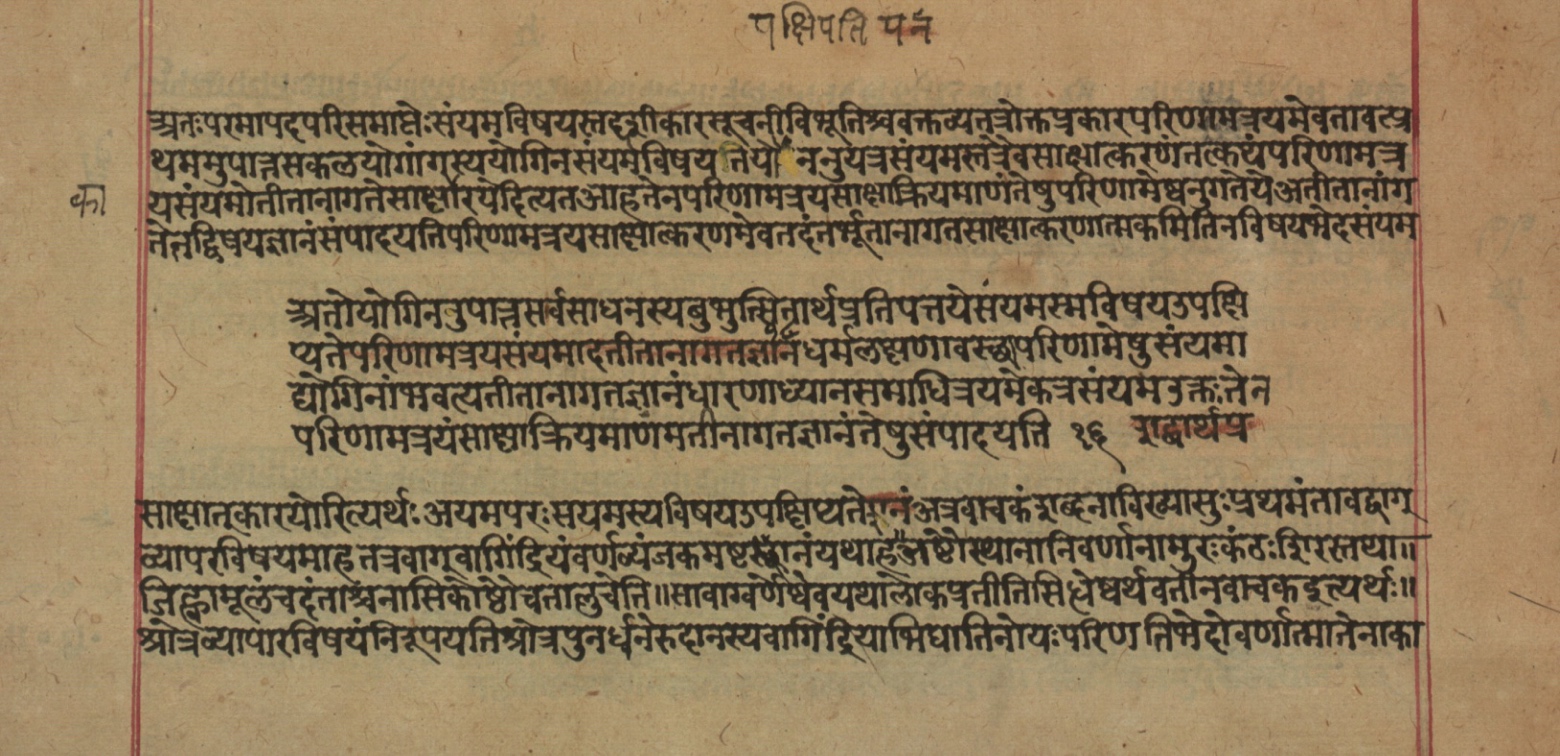 पक्षिपति पने
अतःपरमापदपरिसमाप्तेःसंयमविषयस्तद्वशीकारसूचनीविभूतिश्चवक्तव्यतत्रोक्तप्रकारपरिणामत्रयमेवतावत्प्र
थममुपात्तसकलयोगांगस्ययोगिनसंयमविषयतियो ननुयत्रसंयमस्तत्रैवसाक्षात्करणंतत्कथंपरिणामत्र
यसंयमोतीतानागतेसाक्षारयेदित्यतआहतेनपरिणामत्रयसाक्षाक्रियमाणंतेषुपरिणामेष्वनुगतेयेअतीतानांग
का
तेतद्विषयज्ञानंसंपादयतिपरिणामत्रयसाक्षात्करणमेवतदंतर्भूतानागतसाक्षात्करणात्मकमितिनविषयभेदसंयम
अतोयोगिनउपात्तसर्वसाधनस्यबुभुत्सितार्थप्रतिपत्तयेसंयमस्मविषयउपक्षि
प्यतेपरिणामत्रयसंयमादतीतानागतज्ञानंधर्मलक्षणावस्छापरिणामेषुसंयमा
द्योगिनांभवत्यतीतानागतज्ञानंधारणाध्यानसमाधित्रयमेकत्रसंयमउक्तःतेन
परिणामत्रयंसाक्षाक्रियमाणमतीनागतज्ञानंतेषुसंपादयति १६ शब्दार्थप्र
साक्षात्कारयोरित्यर्थःअयमपरःसयमस्यविषयउपक्षिप्यते अत्रवाचकंशब्दनाविख्यासुःप्रथमंतावद्वाग्
व्यापरविषयमाहतत्रवाग्वागिंद्रियंवर्णव्यंजकमष्टस्छानंयथाहअष्टौस्थानानिवर्णानामुरःकंठःशिरस्तथा॥
जिह्वामूलंचदंताश्चनासिकोष्ठोचतालुचेति॥सावाग्वर्णेषेवयथालोकप्रतीतिसिधेष्वर्थवतीनवाचकइत्यर्थः॥
श्रोत्रव्यापारविषयंनिरूपयतिश्रोत्रपुनर्धनेरुदानस्यवागिंद्रियाभिघातिनोयःपरिणतिभेदोवर्णात्मातेनाका